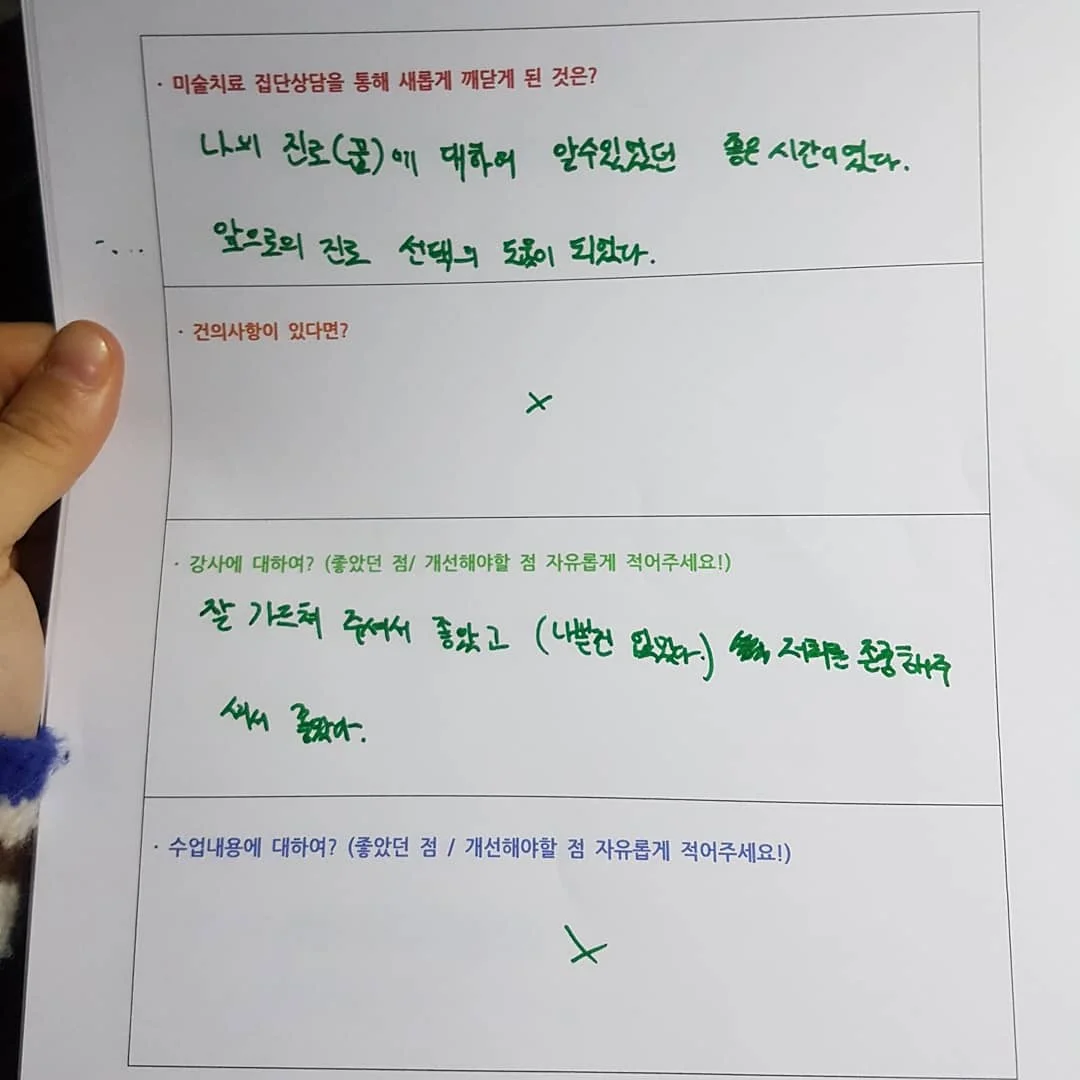 · 미술치료 집단상담을 통해 새롭게 깨닫게 된 것은?
나의 진로(꿈)에 대하여 알수있었던 좋은 시간이였다.
앞으로의 진로 선택의 도움이 되었다.
· 건의사항이 있다면?
X
· 강사에 대하여? (좋았던 점/ 개선해야할 점 자유롭게 적어주세요!)
잘 가르쳐 주셔서 좋았고 (나쁜건 없었다.) 저희를 존중해주
셔서 좋았다.
· 수업내용에 대하여? (좋았던 점 / 개선해야할 점 자유롭게 적어주세요!)
X